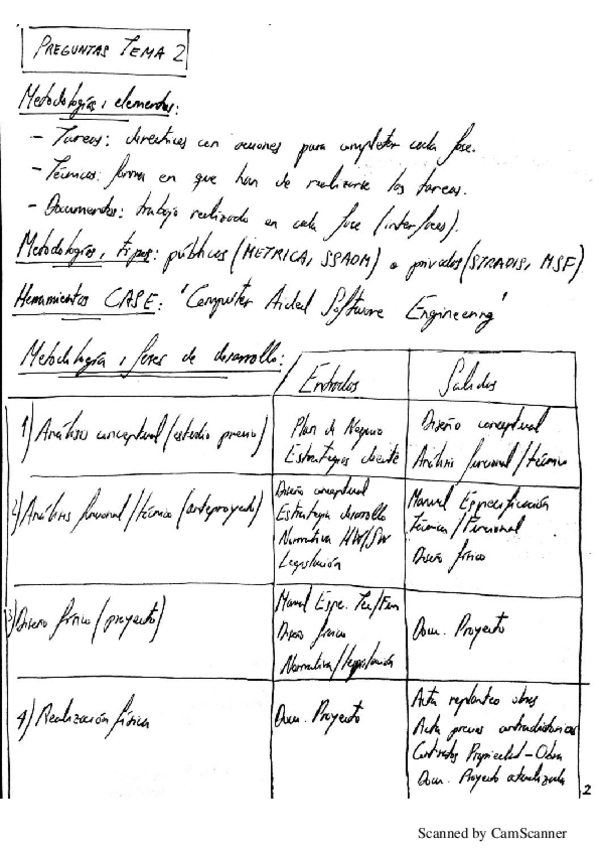 PREGUNTAS TEMA 2
Metodologías, elementos:
- Tareas: directrices con acciones para completar cada fase.
- Técnicas: forma en que han de realizarse las tareas.
- Documentos: trabajo realizado en cada fase (interfases).
Metodologías, tipos: públicas (METRICA, SSADM) o privadas (STRADIS, MSF)
Herramientas CASE: 'Computer Aided Software Engineering'
Metodología, fases de desarrollo:
Entradas
Salidas
1) Análisis conceptual (estudio previo)
Plan de Negocio
Estrategias cliente
Diseño conceptual
Análisis funcional/técnico
2) Análisis funcional/técnico (anteproyecto)
Diseño conceptual
Estrategia desarrollo
Normativa HW/SW
Legislación
Manual Especificación
Técnica/Funcional
Diseño físico
3) Diseño físico (proyecto)
Manual Espe. Tec/Fun
Diseño físico
Normativa/legislación
Docu. Proyecto
4) Realización física
Docu. Proyecto
Acta replanteo obras
Acta precios contradictorios
Contratos Propiedad-Obra
Docu. Proyecto actualizada
2
Scanned by CamScanner